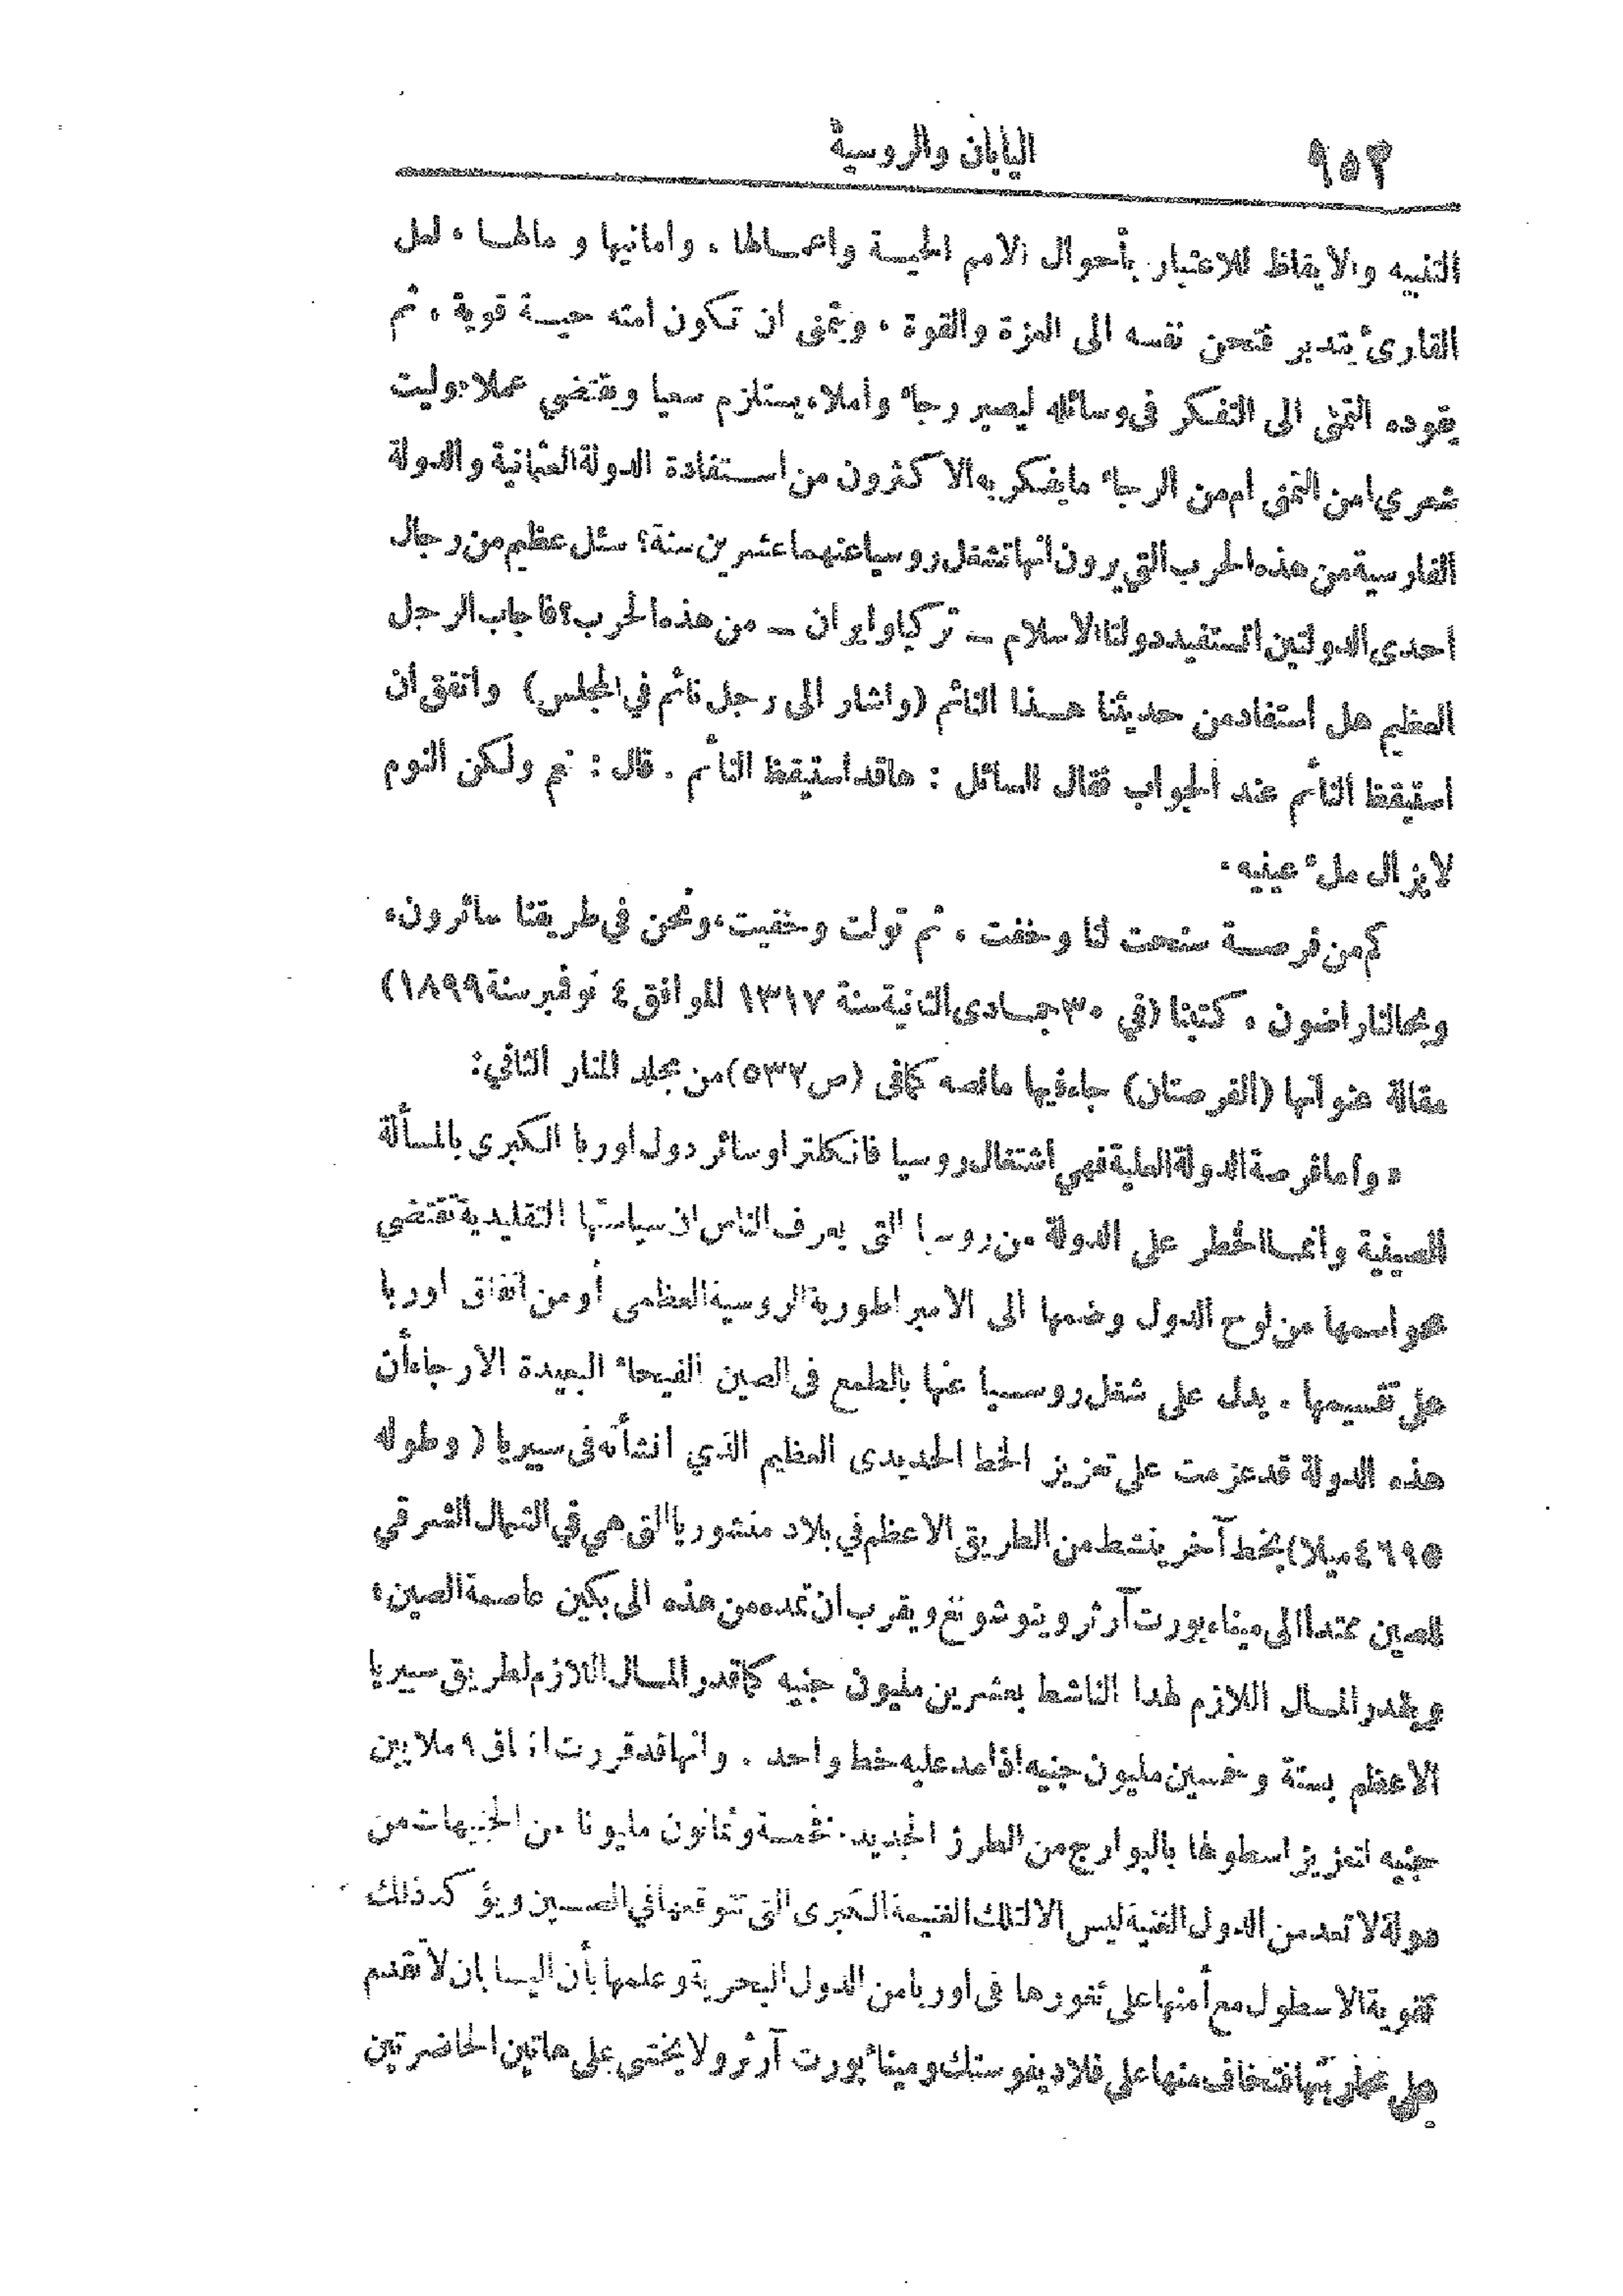 ٩٥٢ اليابان والروسية
التنبيه والايقاظ للاعتبار بأحوال الامم الحيـة واعمـالها ، وأمانيها و مالهـا ، لعل
القارئ يتدبر فتحن نفسه الى العزة والقوة ، ويتمنى ان تكون امته حيـة قوية ، ثم
يقوده التمني الى التفكر في وسائله ليصير رجاءً وأملاً، يستلزم سعيا ويقتضي عملا، وليت
شعري امن التمني ام من الرجاء ما يفكر به الاكثرون من استفادة الدولة العثمانية والدولة
الفارسية من هذه الحرب التي يرون انها تشغل روسيا عنهما عشرين سنة؟ سئل عظيم من رجال
احدى الدولتين اتستفيد دولتا الاسلام ــ تركيا وايران ــ من هذه الحرب؟ فاجاب الرجل
العظيم هل استفاد من حديثنا هـذا النائم (واشار الى رجل نائم في المجلس) واتفق ان
استيقظ النائم عند الجواب فقال السائل : ها قد استيقظ النائم . قال : نعم ولكن النوم
لا يزال ملء عينيه .
كم من فرصـة سنحت لنا وخفت ، ثم تولت وخفيت، ونحن في طريقنا سائرون،
وبحالنا راضون . كتبنا (في ٣٠ جمـادى الثانية سنة ١٣١٧ الموافق ٤ نوفمبر سنة ١٨٩٩)
مقالة عنوانها (الفرصتان) جاء فيها ما نصه كما في (ص ٥٣٢) من مجلد المنار الثاني:
« واما فرصة الدولة العلية فهي اشتغال روسيا فانكلترا وسائر دول اوربا الكبرى بالمسألة
الصينية وانمـا الخطر على الدولة من روسيا التي يعرف الناس ان سياستها التقليدية تقتضي
محو اسمها من لوح الدول وضمها الى الامبراطورية الروسية العظمى أو من اتفاق اوربا
على تقسيمها . يدل على شغل روسـيا عنها بالطمع في الصين الفيحاء البعيدة الارجاء أن
هذه الدولة قد عزمت على تعزيز الخط الحديدى العظيم الذي انشأته في سيبريا ( وطوله
٤٦٩٥ ميلا) بخط آخر ينشط من الطريق الاعظم في بلاد منشوريا التي هي في الشمال الشرقي
للصين ممتدا الى ميناء بورت آرثر وينوشونغ ويقرب ان تمده من هذه الى بكين عاصمة الصين،
ويقدر المـال اللازم لهذا الناشط بعشرين مليون جنيه كما قدر المـال اللازم لطريق سيبريا
الاعظم بستة وخمسين مليون جنيه اذا مد عليه خط واحد . وانها قد قررت انفاق ٩ ملايين
جنيه لتعزيز اسطولها بالبوارج من الطرز الجديد. فخمسة وثمانون مليونا من الجنيهات من
دولة لا تعد من الدول الغنية ليس الا لتلك الغنيمة الكبرى التي تتوقعها في الصـين ويؤكد ذلك
تقوية الاسطول مع أمنها على ثغورها في اوربا من الدول البحرية وعلمها بأن اليـابان لا تقدم
على محاربتها فتخاف منها على فلاديفوستك وميناء بورت آرثر ولا يخشى على هاتين الحاضرتين